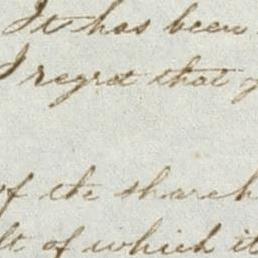 It has been
I regret that
of the
of which it